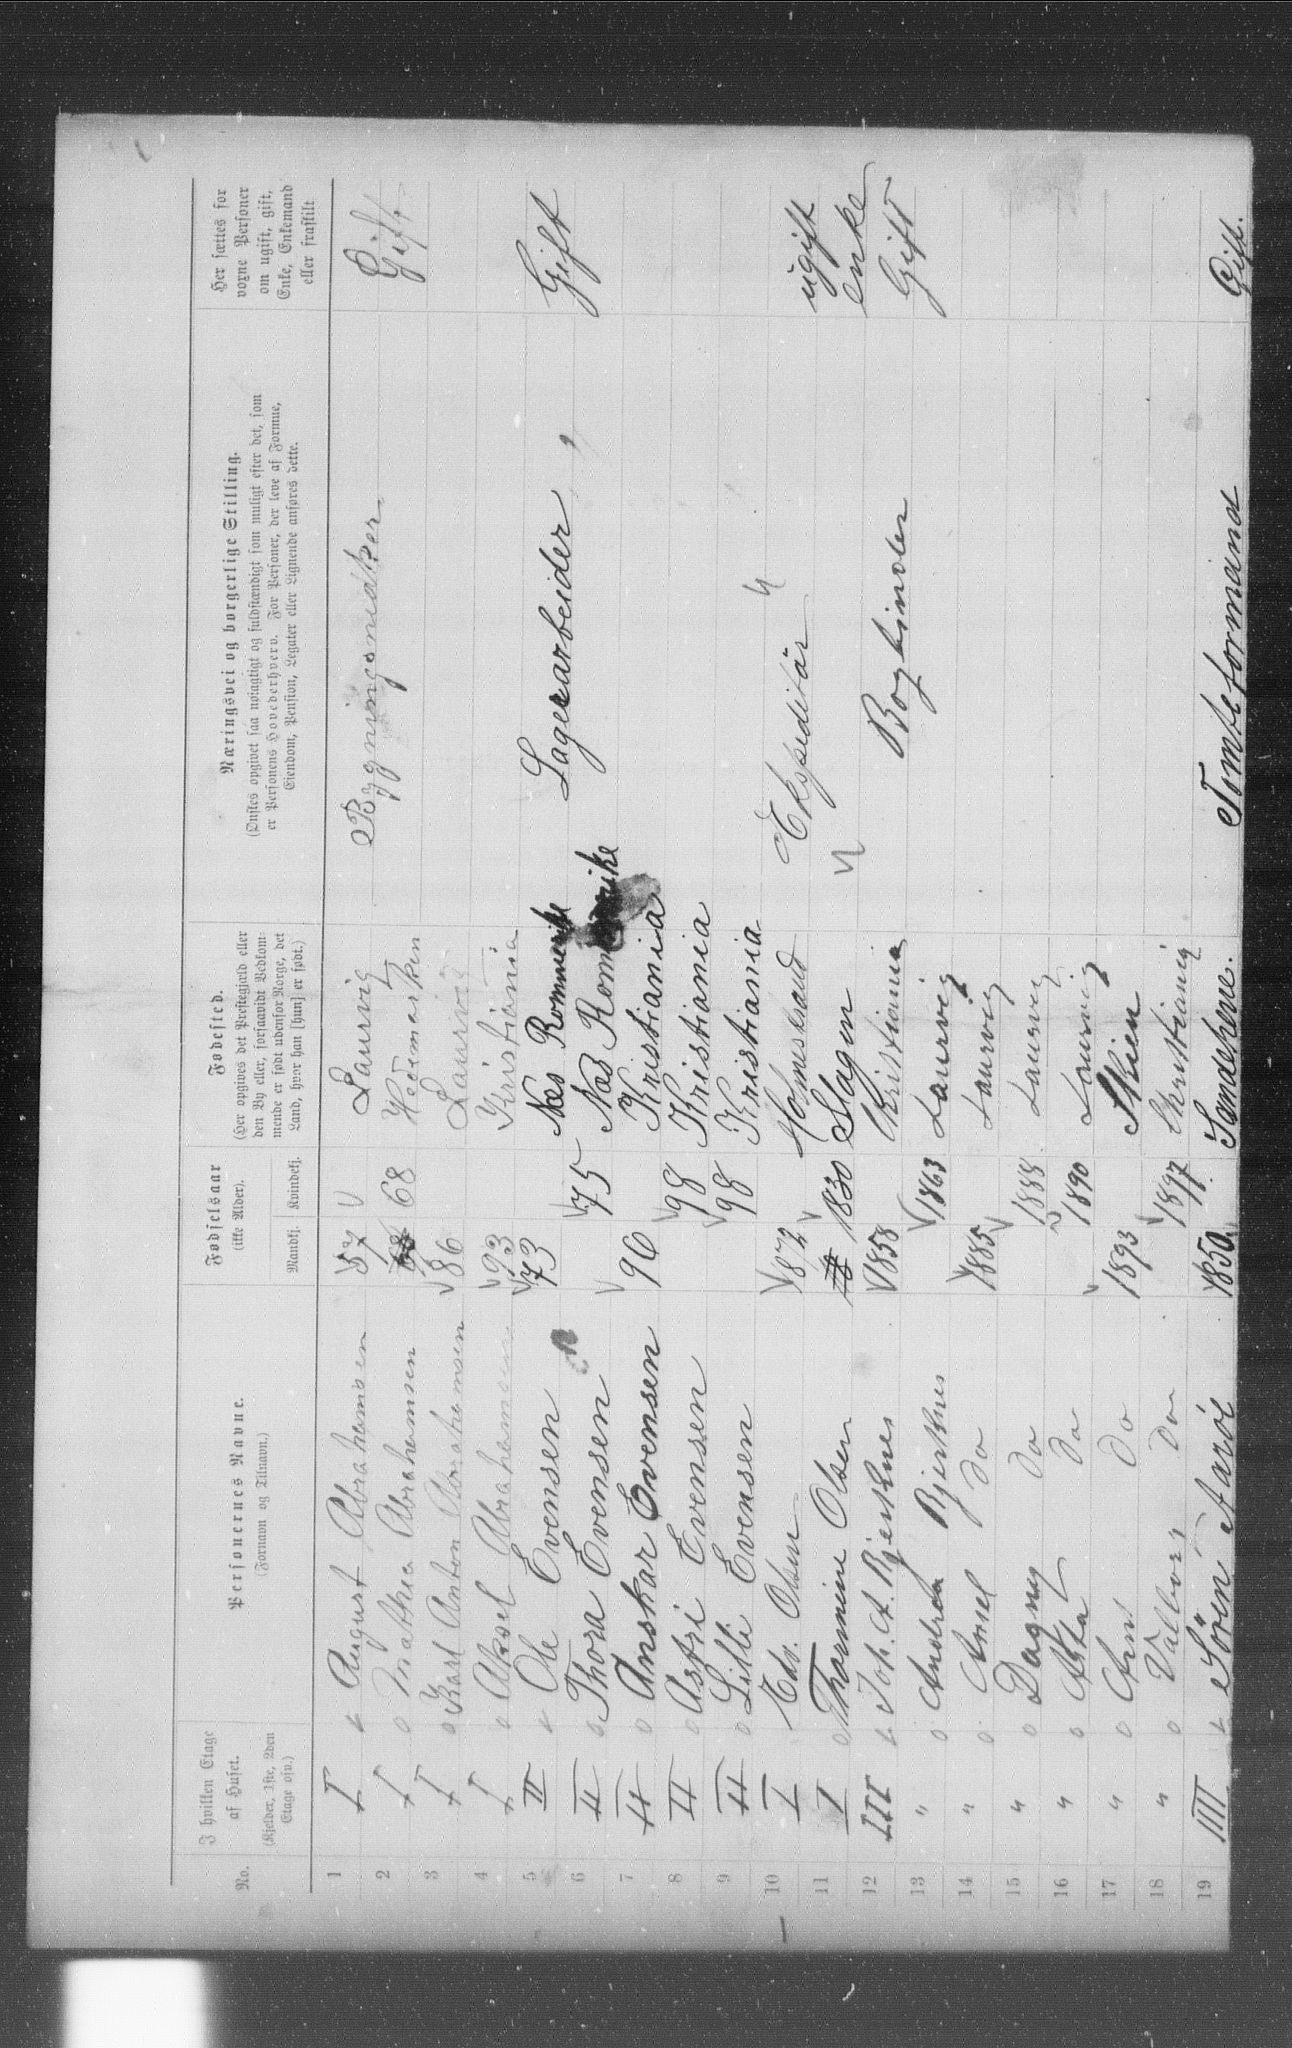 No.
I hvilken Etage
af Huset.
(Kjelder, 1ste, 2den
Etage osv.)
Personernes Navne.
(Fornavn og Tilnavn.)
Fødselsaar
(ikke Alder).
Mandkj. Kvindekj.
Fødested.
(Her opgives det Prestegjæld eller
den By eller, forsaavidt Vedkom-
mende er født udenfor Norge, det
Land, hvor han [hun] er født.)
Næringsvei og borgerlige Stilling.
(Ønskes opgivet saa nøiagtigt og fuldstændigt som muligt efter det, som
er Personens Hovederhverv. For Personer, der leve af Formue,
Eiendom, Pension, Legater eller Lignende anføres dette.
Her sættes for
voxne Personer
om ugift, gift,
Enke, Enkemand
eller fraskilt
1 I August Abrahamsen 57 Laurvig Bygningssnidker Gift
2 I Mathea Abrahamsen 68 Hedmarken
3 I Karl Anton Abrahamsen 86 Laurvig
4 I Aksel Abrahamsen 93 Kristiania
5 II Ole Evensen 73 Næs Rommerike Lagerarbeider Gift
6 II Thora Evensen 75 Næs Romerike
7 II Anskar Evensen 96 Kristiania
8 II Astri Evensen 98 Kristiania
9 II Lilli Evensen 98 Kristiania
10 I Edv. Olsen 1872 Holmestrand Ekspeditär ugift
11 I Thormine Olsen 1830 Slagen enke
12 III Joh. A. Bjerknes 1858 Kristiania Bogbinder Gift
13 " Andrea Bjerknes 1863 Laurvig
14 " do 1885 Laurvig
15 " Dagny do 1888 Laurvig
16 " Asta do 1890 Laurvig
17 " do 1893 Skien
18 " Valborg do 1897 Christiania
19 IIII Sören 1850 Sandehere. Tomteformand Gift.